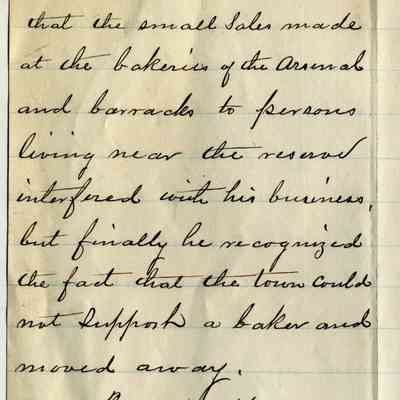 that the small Sales made
at the bakeries of the Arsenal
and barracks to persons
living near the reserve
interfered with his business,
but finally he recognized
the fact that the town could
not support a baker and
moved away.